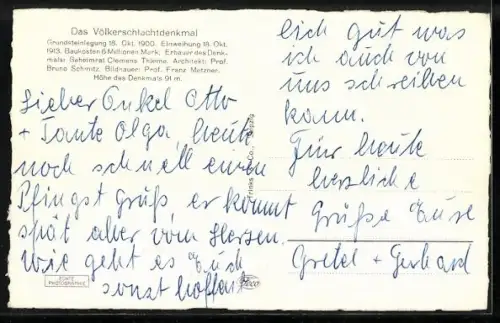 Das Völkerschlachtdenkmal
Grundsteinlegung 18. Okt. 1900. Einweihung 18. Okt.
1913. Baukosten 6 Millionen Mark. Erbauer des Denk-
mals: Geheimrat Clemens Thieme. Architekt: Prof.
Bruno Schmitz. Bildhauer: Prof. Franz Metzner.
Höhe des Denkmals 91 m.
Lieber Onkel Otto
+ Tante Olga, heute
noch schnell euren
Pfingst Gruß, er kommt
spät aber vom Herzen.
Wie geht es Euch
sonst hoffent
lich gut was
ich auch von
uns schreiben
kann.
Für heute
herzliche
Grüße Eure
Gretel + Gerhard
ECHTE
PHOTOGRAPHIE
Co., Leipzig